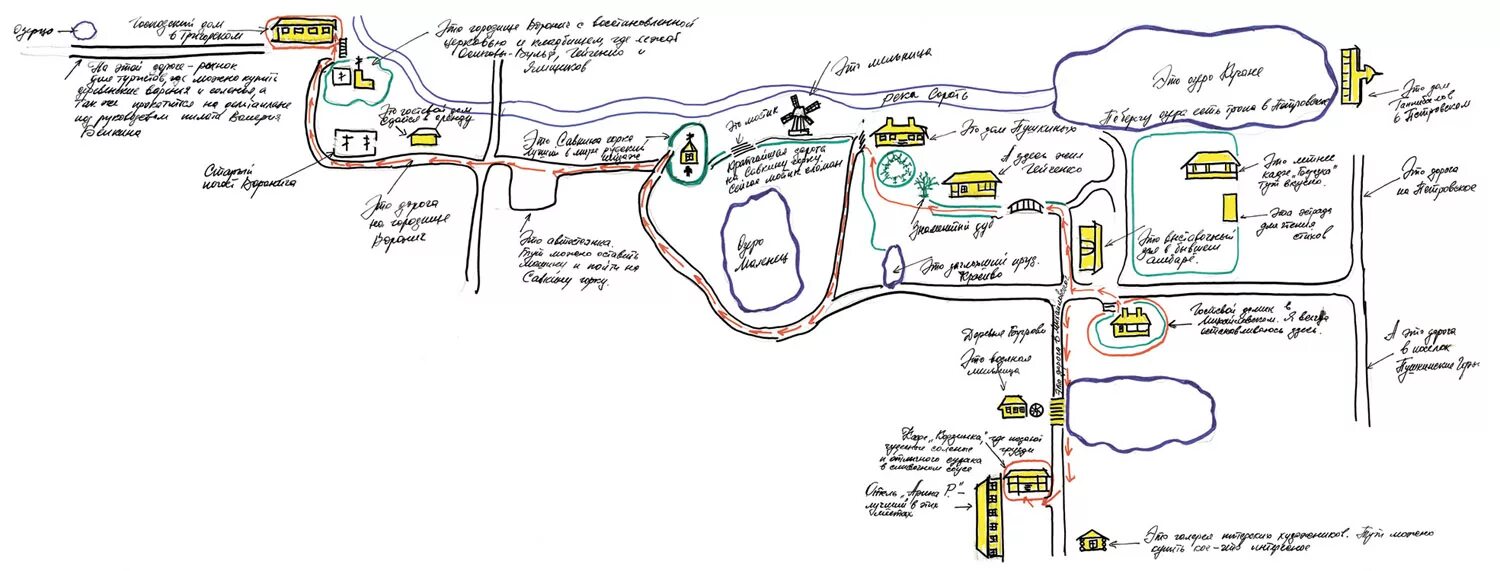 Озерцо
Господский дом
в Тригорском
На этой дороге - рынок
для туристов, где можно купить
деревенские варения и соленья, а
так же прокатится на дельтаплане
под руководством пилота Валерия
Это городище Воронич с восстановленной
церковью и кладбищем, где лежат
Осиповы-Вульф, Гейченко и
Ямщиков
Это гостевой дом
сдается в аренду
Старый
погост Воронича
Это дорога
на городище
Воронич
Это Савкина горка
лучший в мире русский
пейзаж
Это автостоянка.
Тут можно оставить
машину и пойти на
Савкину горку.
Это мостик
Это мельница
Кратчайшая дорога
на Савкину горку.
Сейчас мостик сломан
Озеро
Маленец
река Сороть
Это дом Пушкиных
А здесь жил
Гейченко
Знаменитый дуб
Это домашний пруд.
Красиво
Это озеро Кучане
По берегу озера есть тропа в Петровское
Это дом
Ганнибалов
в Петровском
Это летнее
кафе
Тут вкусно.
Эта эстрада
для чтения
стихов
Это выставочный
зал в бывшем
амбаре.
Это дорога
на Петровское
Гостевой домик в
Михайловском. Я всегда
останавливаюсь здесь.
А это дорога
в поселок
Пушкинские Горы
Это дорога в Михайловское
Деревня Бугрово
Это водяная
мельница
Кафе "Корчинка", где подают
чудесные соленые грузди
и отличного судака
в сливочном соусе
Отель "Арина Р." -
лучший в этих
местах
Это галерея питерских художников. Тут можно
купить кое-что интересное